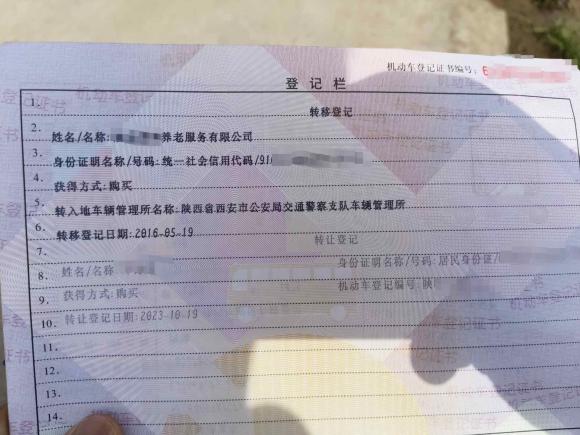 机动车登记证书编号:
登记栏
1. 转移登记
2. 姓名/名称: 养老服务有限公司
3. 身份证明名称/号码:统一社会信用代码/91
4. 获得方式:购买
5. 转入地车辆管理所名称:陕西省西安市公安局交通警察支队车辆管理所
6. 转移登记日期:2016-05-19
7. 转让登记
8. 姓名/名称: 身份证明名称/号码:居民身份证/
9. 获得方式:购买 机动车登记编号:陕
10. 转让登记日期:2023-10-19
11.
12.
13.
14.